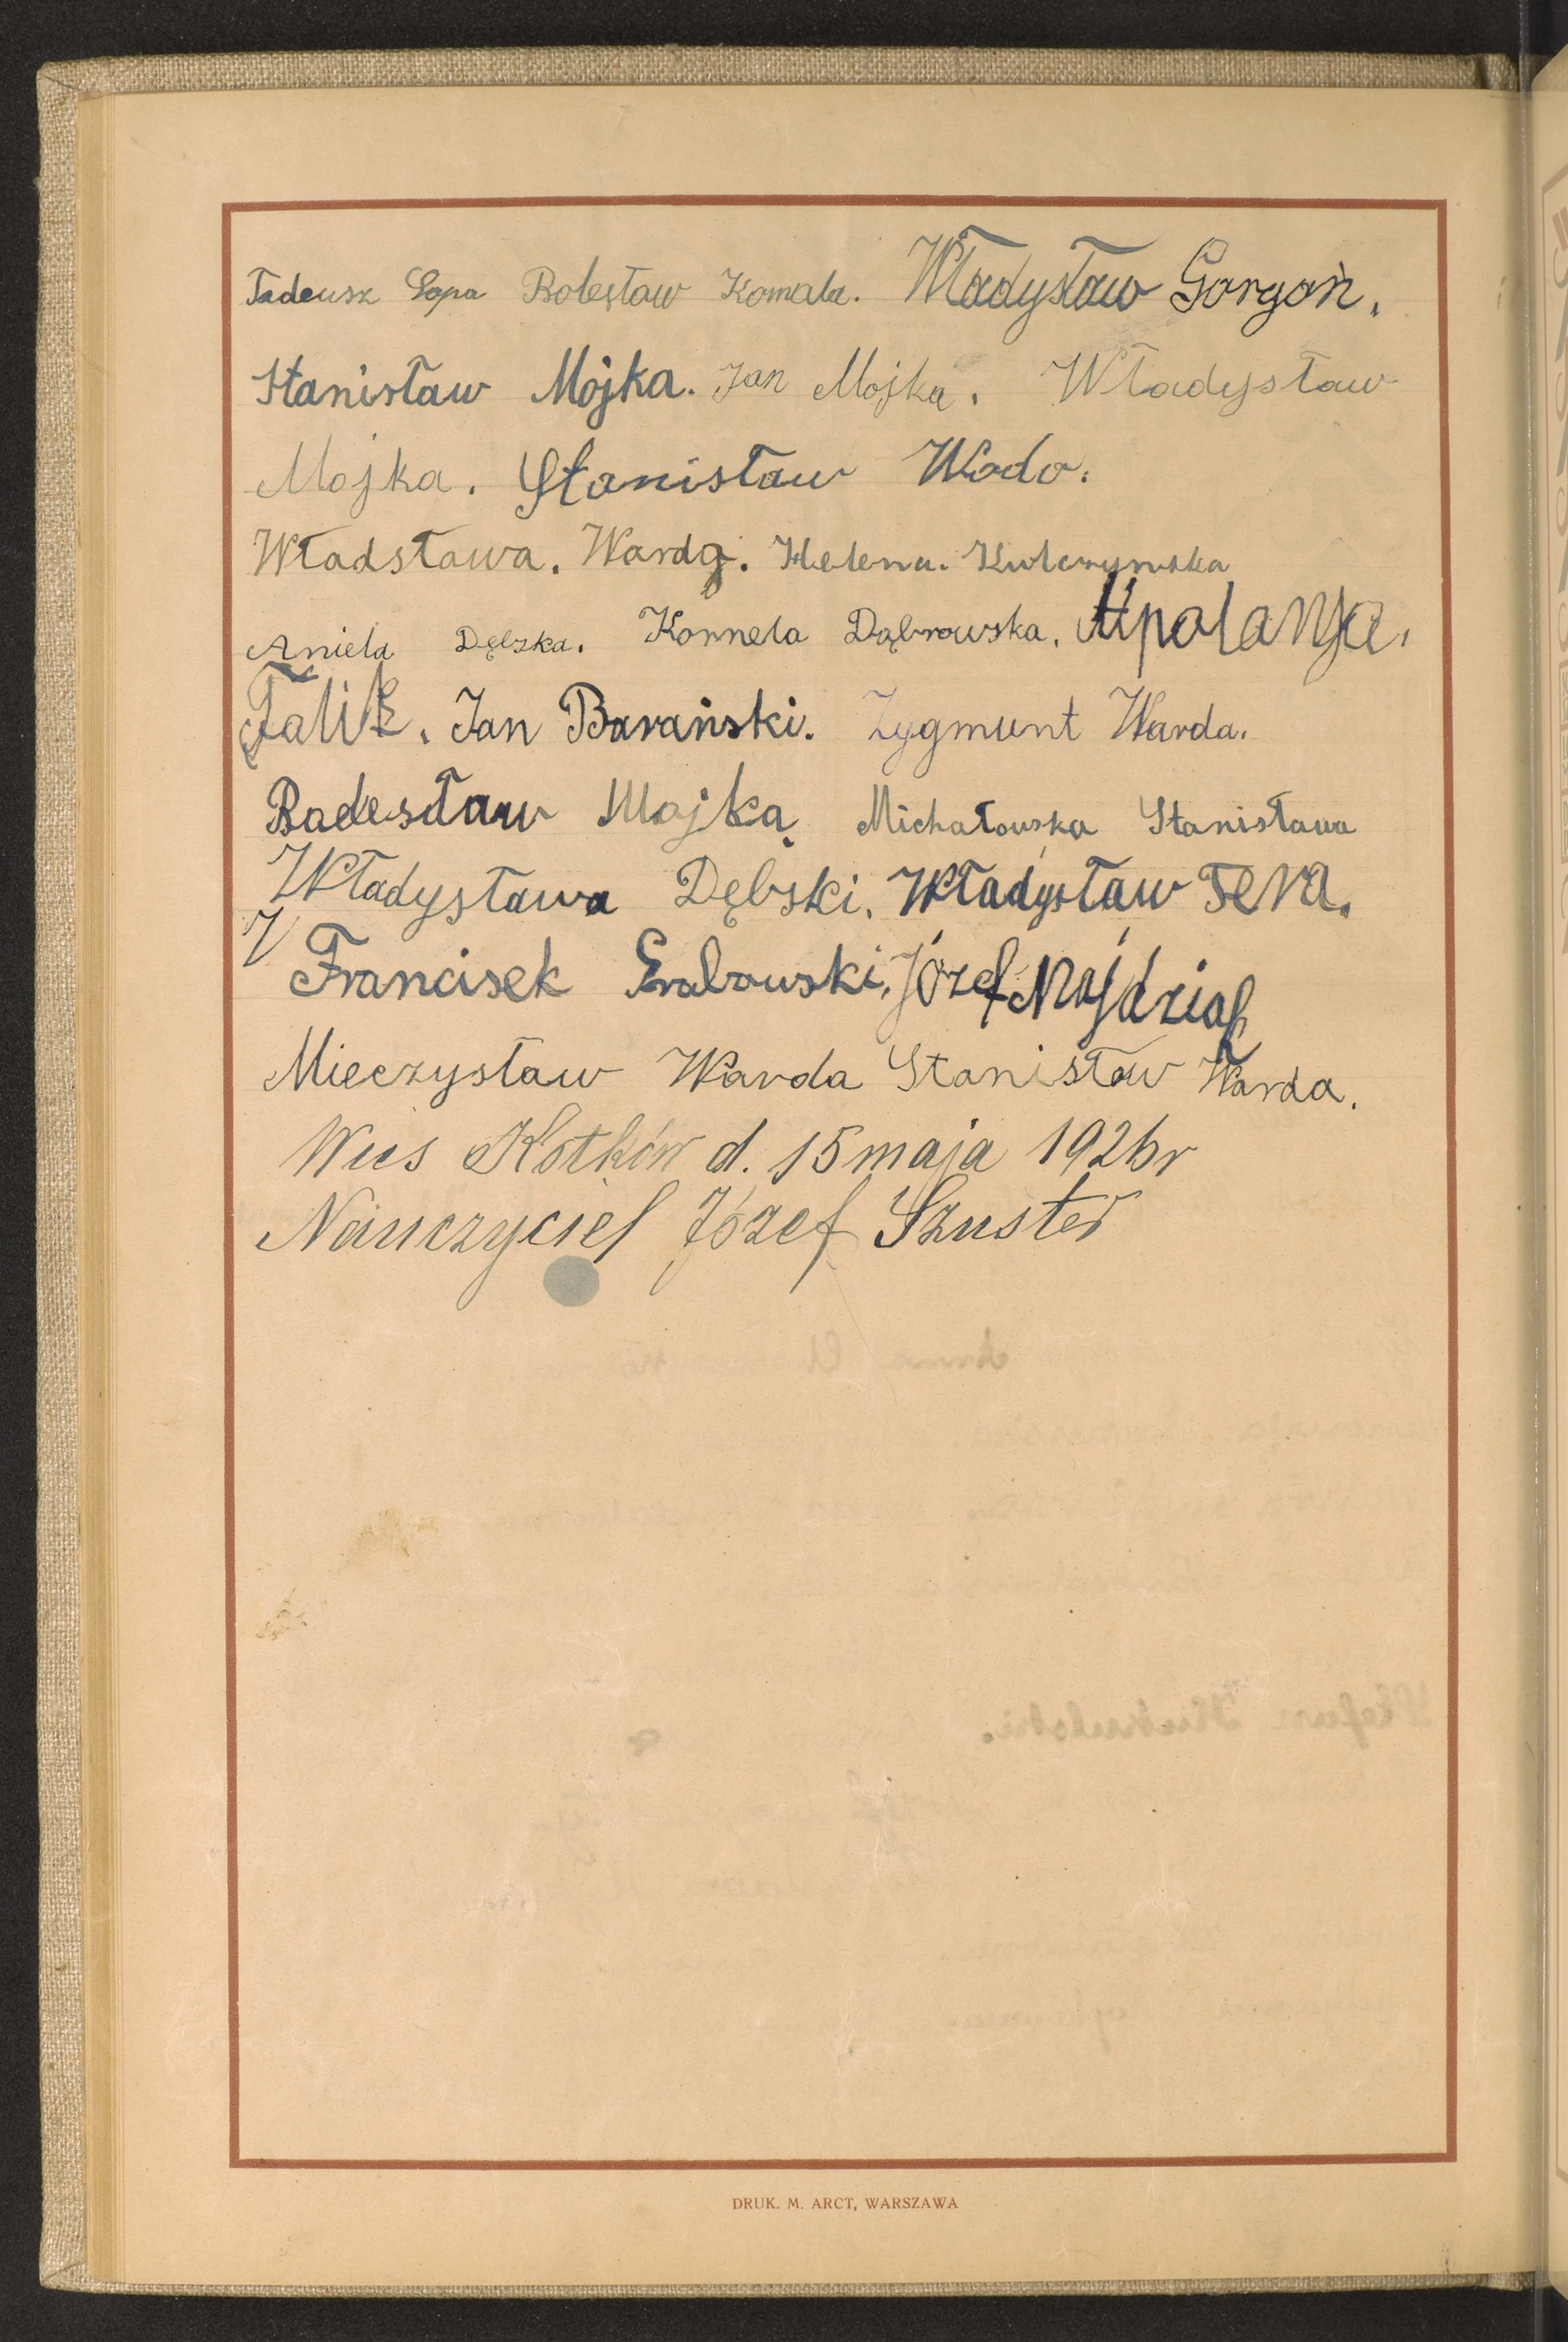 Tadeusz Łopa Bolesław Komala. Władysław Gorgoń.
Stanisław Mojka. Jan Mojka. Władysław
Mojka. Stanisław Wodo.
Władstawa. Warda. Helena. Kulczynska
Aniela Dębzka. Kornela Dąbrowska. Apolanja.
Falik. Jan Barański. Zygmunt Warda.
Badesław Mojka Michałowska Stanisława
Władysława Dębski. Władysław Tera.
Francisek Grabowski. Józef Majdziak
Mieczysław Warda Stanisław Warda.
Wieś Kotków d. 15 maja 1926 r
Nauczyciel Józef Szuster
DRUK. M. ARCT, WARSZAWA